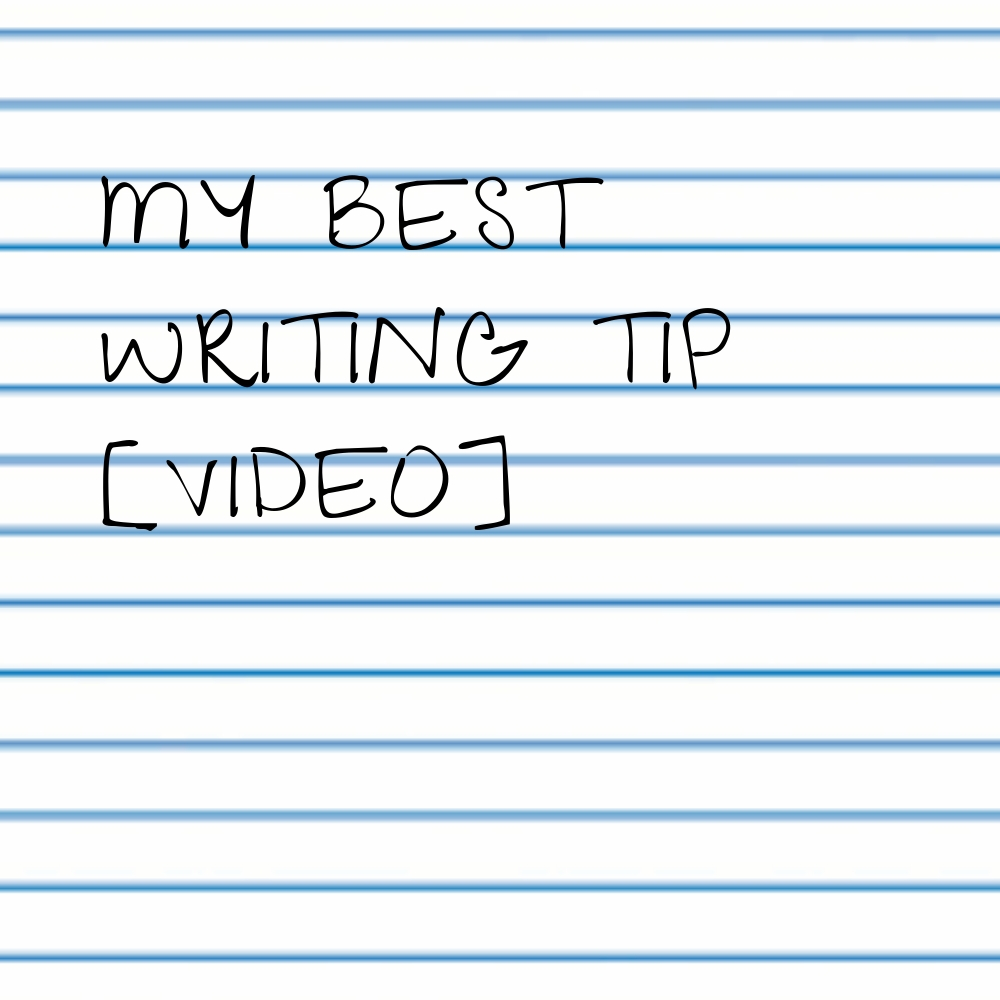 MY BEST
WRITING TIP
[VIDEO]